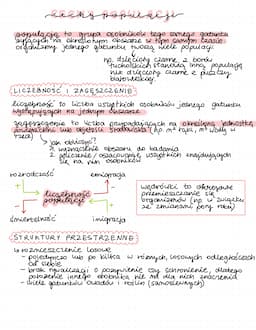 cechy populacji
populacja to grupa osobników tego samego gatunku
żyjących na określonym obszarze w tym samym czasie
organizmy jednego gatunku tworzą wiele populacji
np. dzięcioły czarne z borów
tucholskich stanowią inną populację
niż dzięcioły czarne z puszczy
białowieskiej
LICZEBNOŚĆ I ZAGĘSZCZENIE
liczebność to liczba wszystkich osobników jednego gatunku
występujących na jednym obszarze
zagęszczenie to liczba przypadających na określoną jednostkę
powierzchni lub objętości środowiska (np. m² łąki, m³ wody w
rzece)
jak obliczyć?
1. wyznaczenie obszaru do badania
2. zliczenie / oszacowanie wszystkich znajdujących
się na nim osobników
rozrodczość emigracja
liczebność
populacji
śmiertelność imigracja
wędrówki to okresowe
przemieszczanie się
organizmów (np. w związku
ze zmianami pory roku)
STRUKTURY PRZESTRZENNE
rozmieszczenie losowe
- pojedynczo lub po kilka w różnych, losowych odległościach
od siebie
- brak rywalizacji o pożywienie czy schronienie, dlatego
położenie innego osobnika nie ma dla nich znaczenia
- wiele gatunków owadów i roślin (samosiewnych)